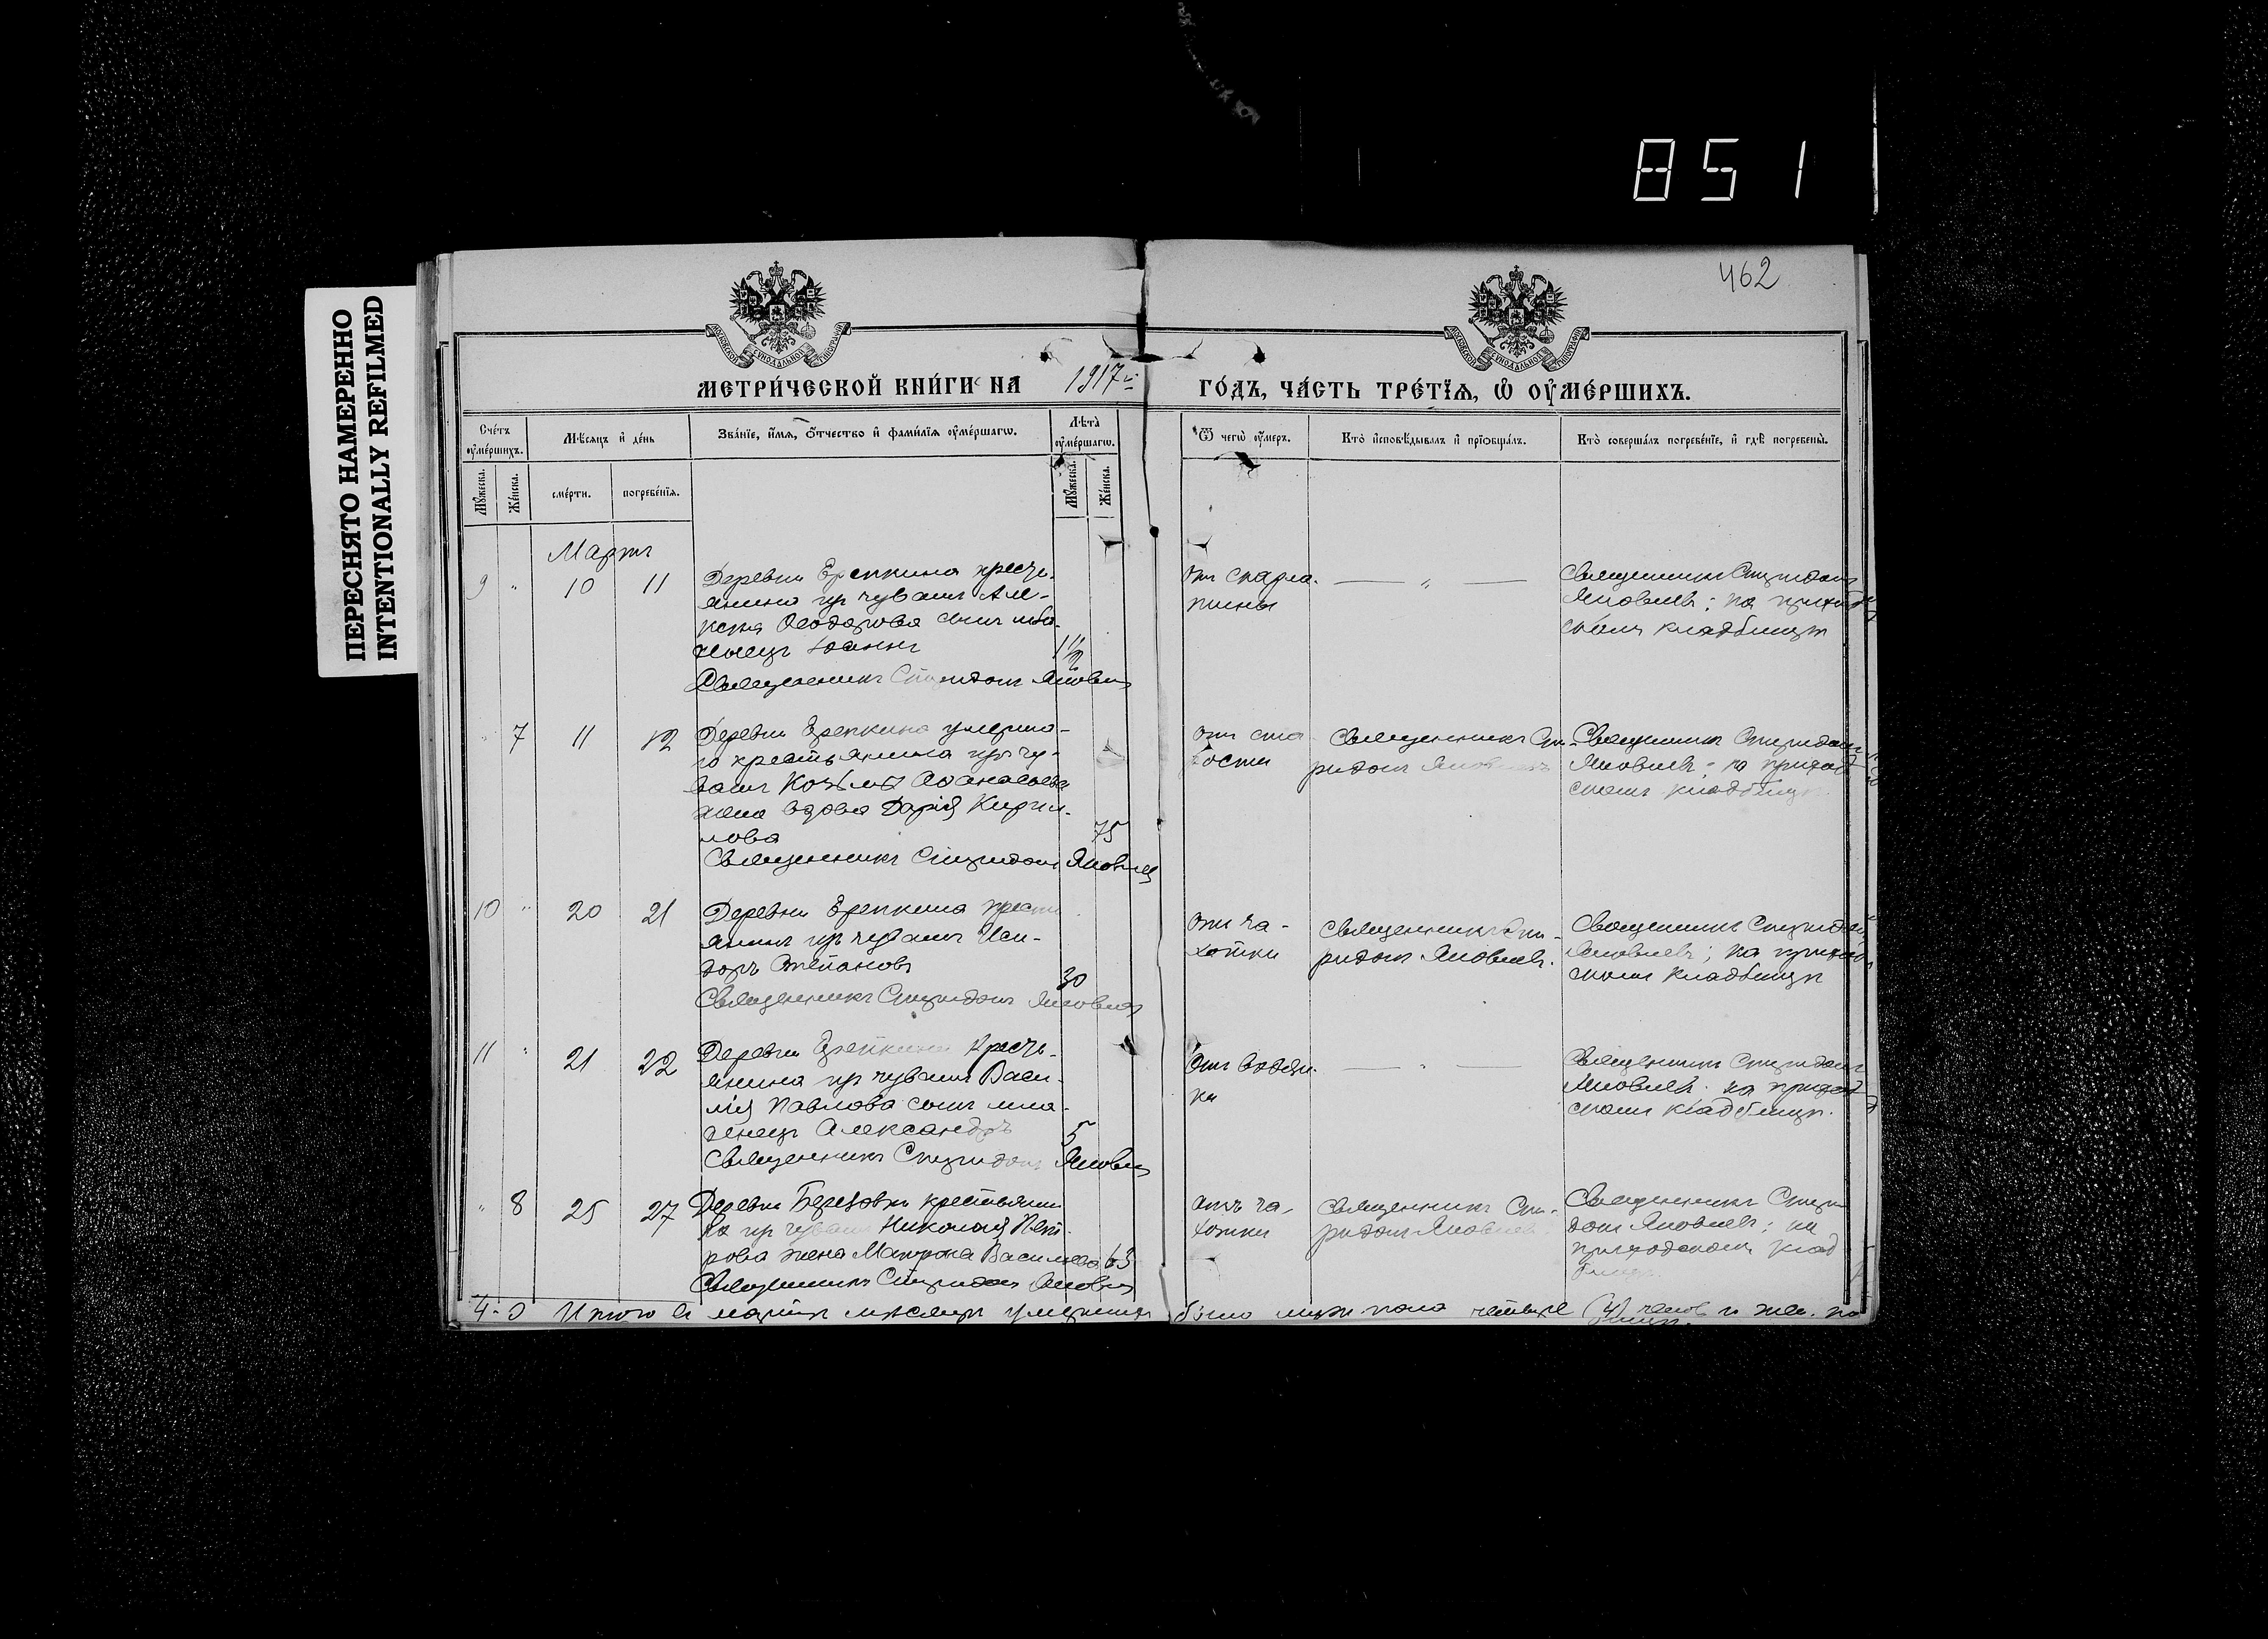 851
ПЕРЕСНЯТО НАМЕРЕННО
INTENTIONALLY REFILMED
462
МОСКОВСКОЙ СѴНОДАЛЬНОЙ ТИПОГРАФІИ
МОСКОВСКОЙ СѴНОДАЛЬНОЙ ТИПОГРАФІИ
МЕТРИ́ЧЕСКОЙ КНИ́ГИ НА 1917й ГО́ДЪ, ЧА́СТЬ ТРЕ́ТЇѦ, Ѡ҆ ОУ҆МЕ́РШИХЪ.
Сче́тъ оу҆ме́ршихъ.
Мꙋ́жеска.
Же́нска.
Мѣ́сѧцъ и҆ де́нь
сме́рти.
погребе́нїѧ.
Зва́нїе, и҆́мѧ, ѻ҆́тчество и҆ фами́лїѧ оу҆ме́ршагѡ.
Лѣ́та оу҆ме́ршагѡ.
Мꙋ́жеска.
Же́нска.
Ѿ чегѡ̀ оу҆́меръ.
Кто̀ и҆сповѣ́дывалъ и҆ прїѡбща́лъ.
Кто̀ соверша́лъ погребе́нїе, и҆ гдѣ̀ погребены̀.
Мартъ
9 " 10 11
Деревни Ерепкина кресть-
янина из чуваш Але-
Ѳеодорова сынъ мла-
денецъ Іоаннъ 1½
Священникъ Спиридонъ Яковлев
от скарла-
тины
— " —
Священник Спиридон
Яковлевъ; на приход
ском кладбище
" 7 11 12
Деревни Ерепкина умерша-
го крестьянина из чу-
ваш Козьмы Аѳанасьева
жена вдова Дарія Кирил-
лова 75
Священникъ Спиридон Яковлев
от ста
рости
Священникъ Спи-
ридон Яковлевъ
Священник Спиридон
Яковлевъ; на приход
ском кладбище
10 " 20 21
Деревни Ерепкина крест
янин из чуваш Иси-
доръ Степановъ 30
Священникъ Спиридонъ Яковлев
от ча-
хотки
Священникъ Спи-
ридон Яковлев.
Священник Спиридон
Яковлевъ; на приход
ском кладбище
11 " 21 22
Деревни Ерепкина кресть-
янина из чуваш Васи-
лія Павлова сынъ мла-
денецъ Александръ 5
Священникъ Спиридон Яковлев
— " —
Священник Спиридон
Яковлев на приход
ском кладбище.
" 8 25 27
Деревни Березовки крестьяни
на из чуваш Николая Пет-
рова жена Матрона Васильева 63
Священник Спиридон Яковлев
отъ ча-
хотки
Священник Спи-
ридон Яковлев
Священникъ Спири
дон Яковлевъ; на
приходском клад
бище
Итого в марте месяце умерших было муж пола четыре (4) челов и жен. по